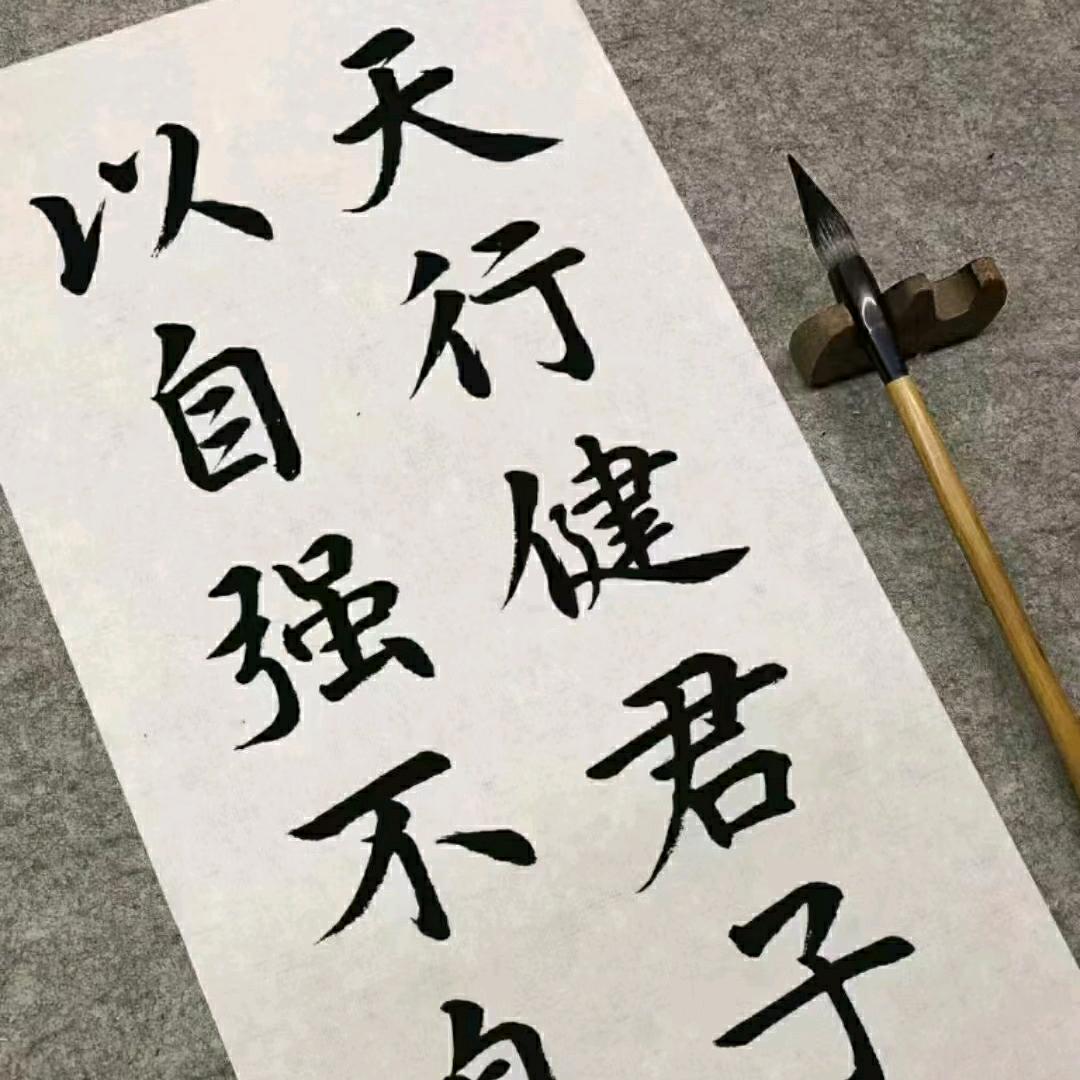 天行健君子
以自强不